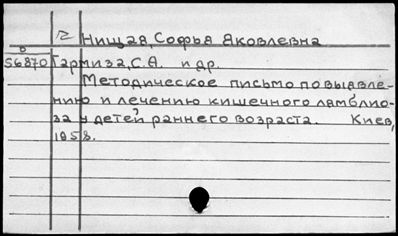 Нищая, Софья Яковлевна
О
56870 Гармиза, С.А. и др.
Методическое письмо по выявле-
нию и лечению кишечного лямблио-
за у детей раннего возраста. Киев,
1958.